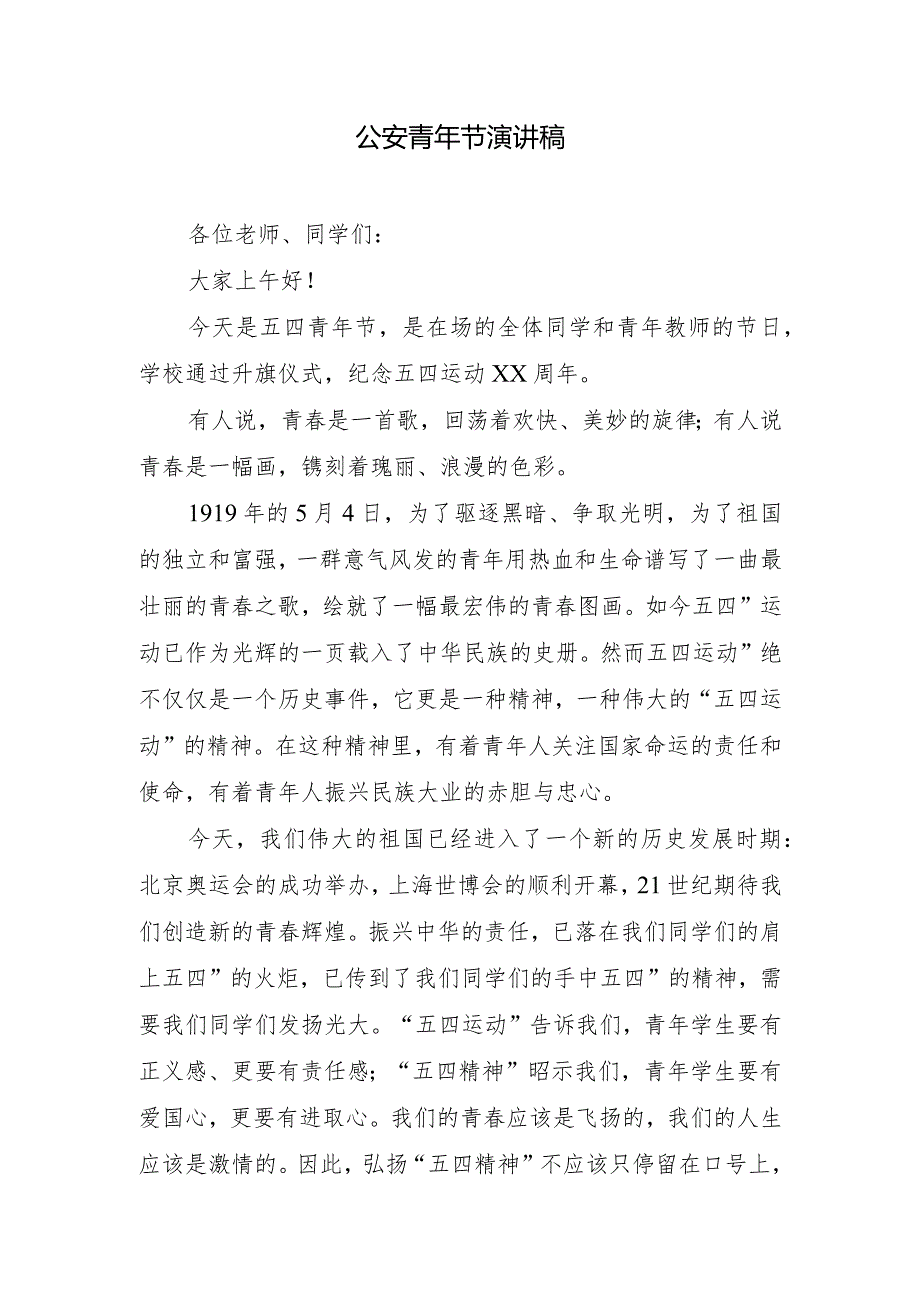 公安青年节演讲稿
各位老师、同学们：
大家上午好！
今天是五四青年节，是在场的全体同学和青年教师的节日，
学校通过升旗仪式，纪念五四运动XX周年。
有人说，青春是一首歌，回荡着欢快、美妙的旋律；有人说
青春是一幅画，镌刻着瑰丽、浪漫的色彩。
1919年的5月4日，为了驱逐黑暗、争取光明，为了祖国
的独立和富强，一群意气风发的青年用热血和生命谱写了一曲最
壮丽的青春之歌，绘就了一幅最宏伟的青春图画。如今五四”运
动已作为光辉的一页载入了中华民族的史册。然而五四运动”绝
不仅仅是一个历史事件，它更是一种精神，一种伟大的“五四运
动”的精神。在这种精神里，有着青年人关注国家命运的责任和
使命，有着青年人振兴民族大业的赤胆与忠心。
今天，我们伟大的祖国已经进入了一个新的历史发展时期：
北京奥运会的成功举办，上海世博会的顺利开幕，21世纪期待我
们创造新的青春辉煌。振兴中华的责任，已落在我们同学们的肩
上五四”的火炬，已传到了我们同学们的手中五四”的精神，需
要我们同学们发扬光大。“五四运动”告诉我们，青年学生要有
正义感、更要有责任感；“五四精神”昭示我们，青年学生要有
爱国心，更要有进取心。我们的青春应该是飞扬的，我们的人生
应该是激情的。因此，弘扬“五四精神”不应该只停留在口号上，